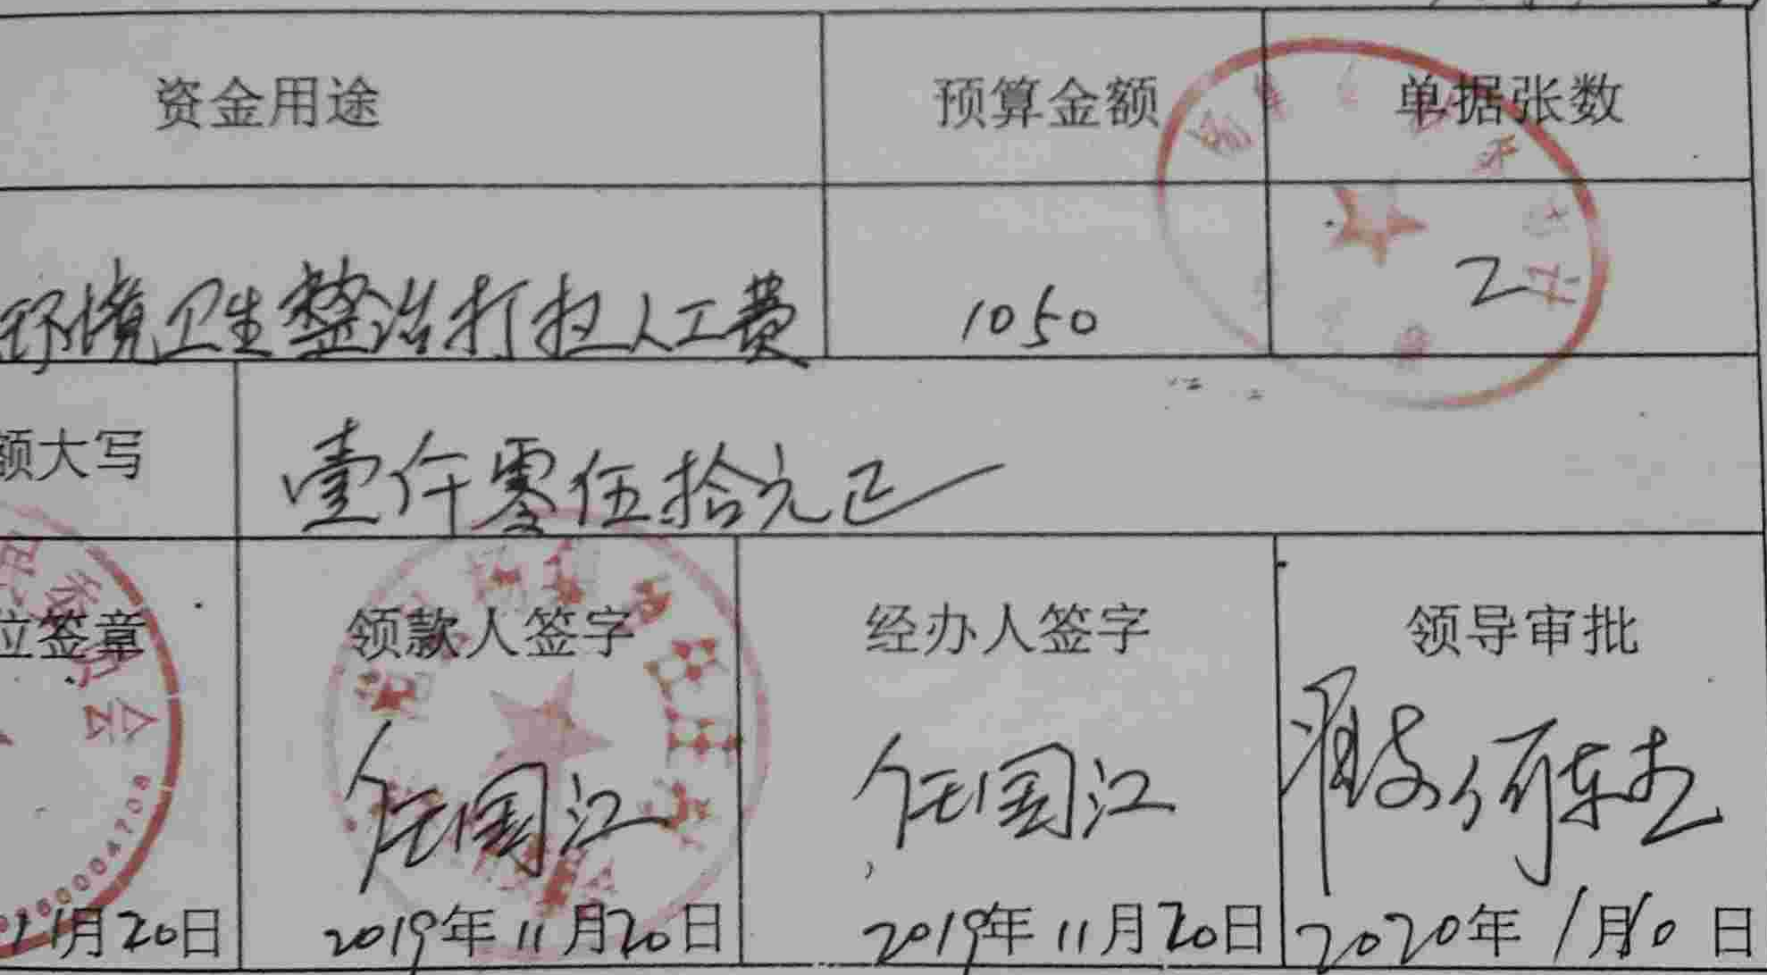 资金用途 预算金额 单据张数
环境卫生整治打扫人工费 1050 2
额大写 壹仟零伍拾元正
位签章 领款人签字 经办人签字 领导审批
任国江 任国江
11月20日 2019年11月20日 2019年11月20日 2020年1月10日